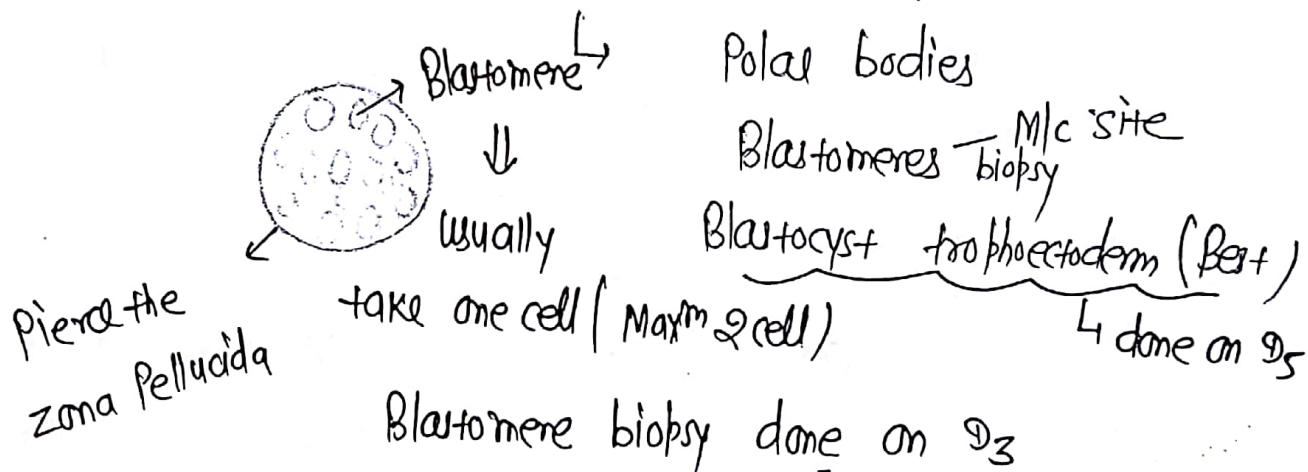 Blastomere ↳ Polar bodies
Blastomeres – M/c site biopsy
⇓
usually
take one cell ( Maxᵐ 2 cell)
Blastocyst trophoectoderm (Best)
↳ done on D5
Pierce the
zona Pellucida
Blastomere biopsy done on D3